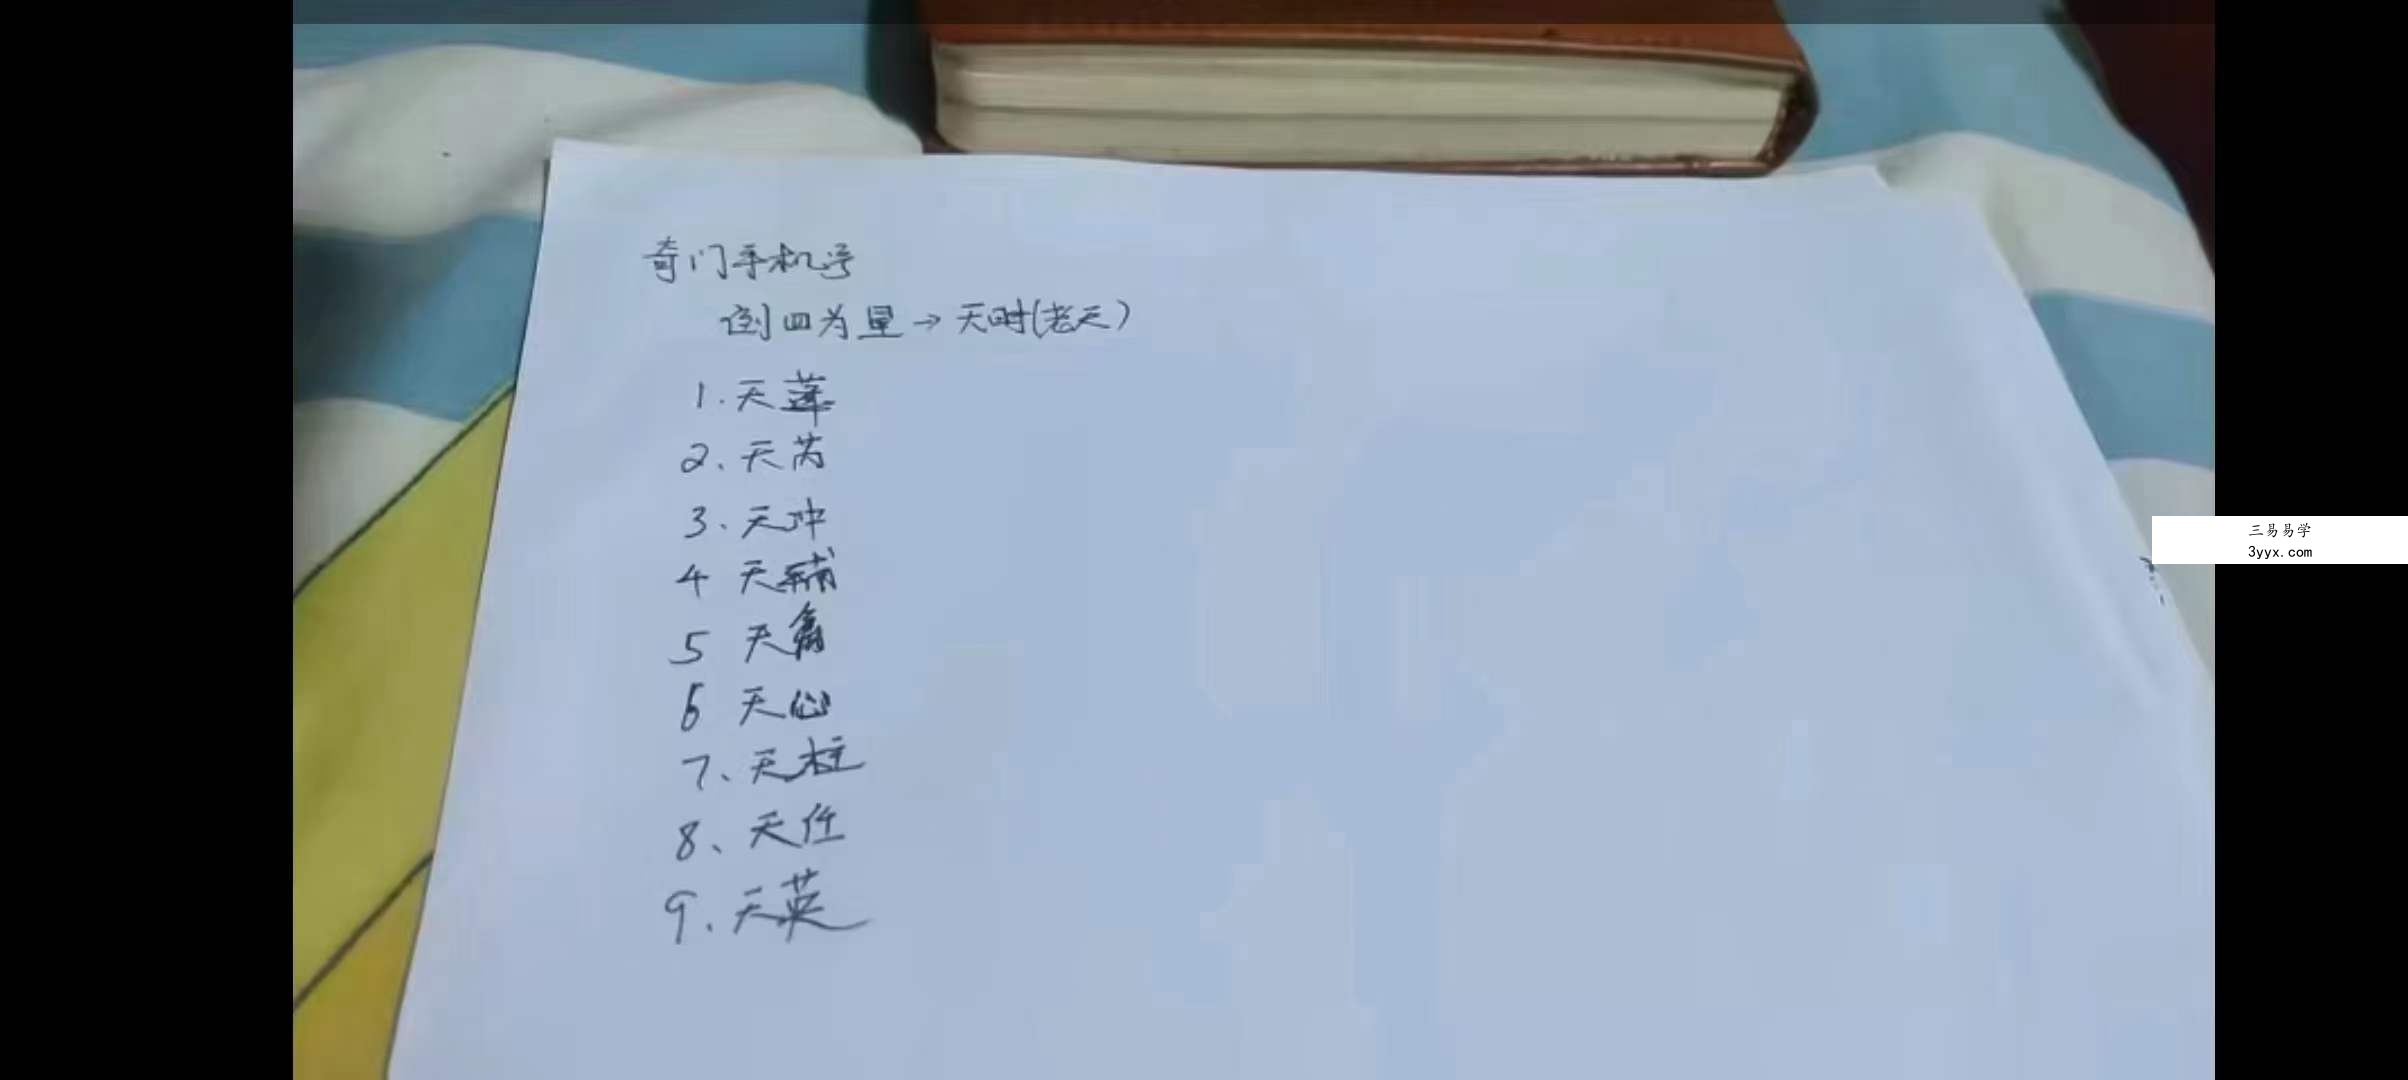 奇门手机号
倒四为星→天时(老天)
1.天蓬
2、天芮
3、天冲
4 天辅
5 天禽
6 天心
7、天柱
8、天任
9、天英
三易易学
3yyx.com